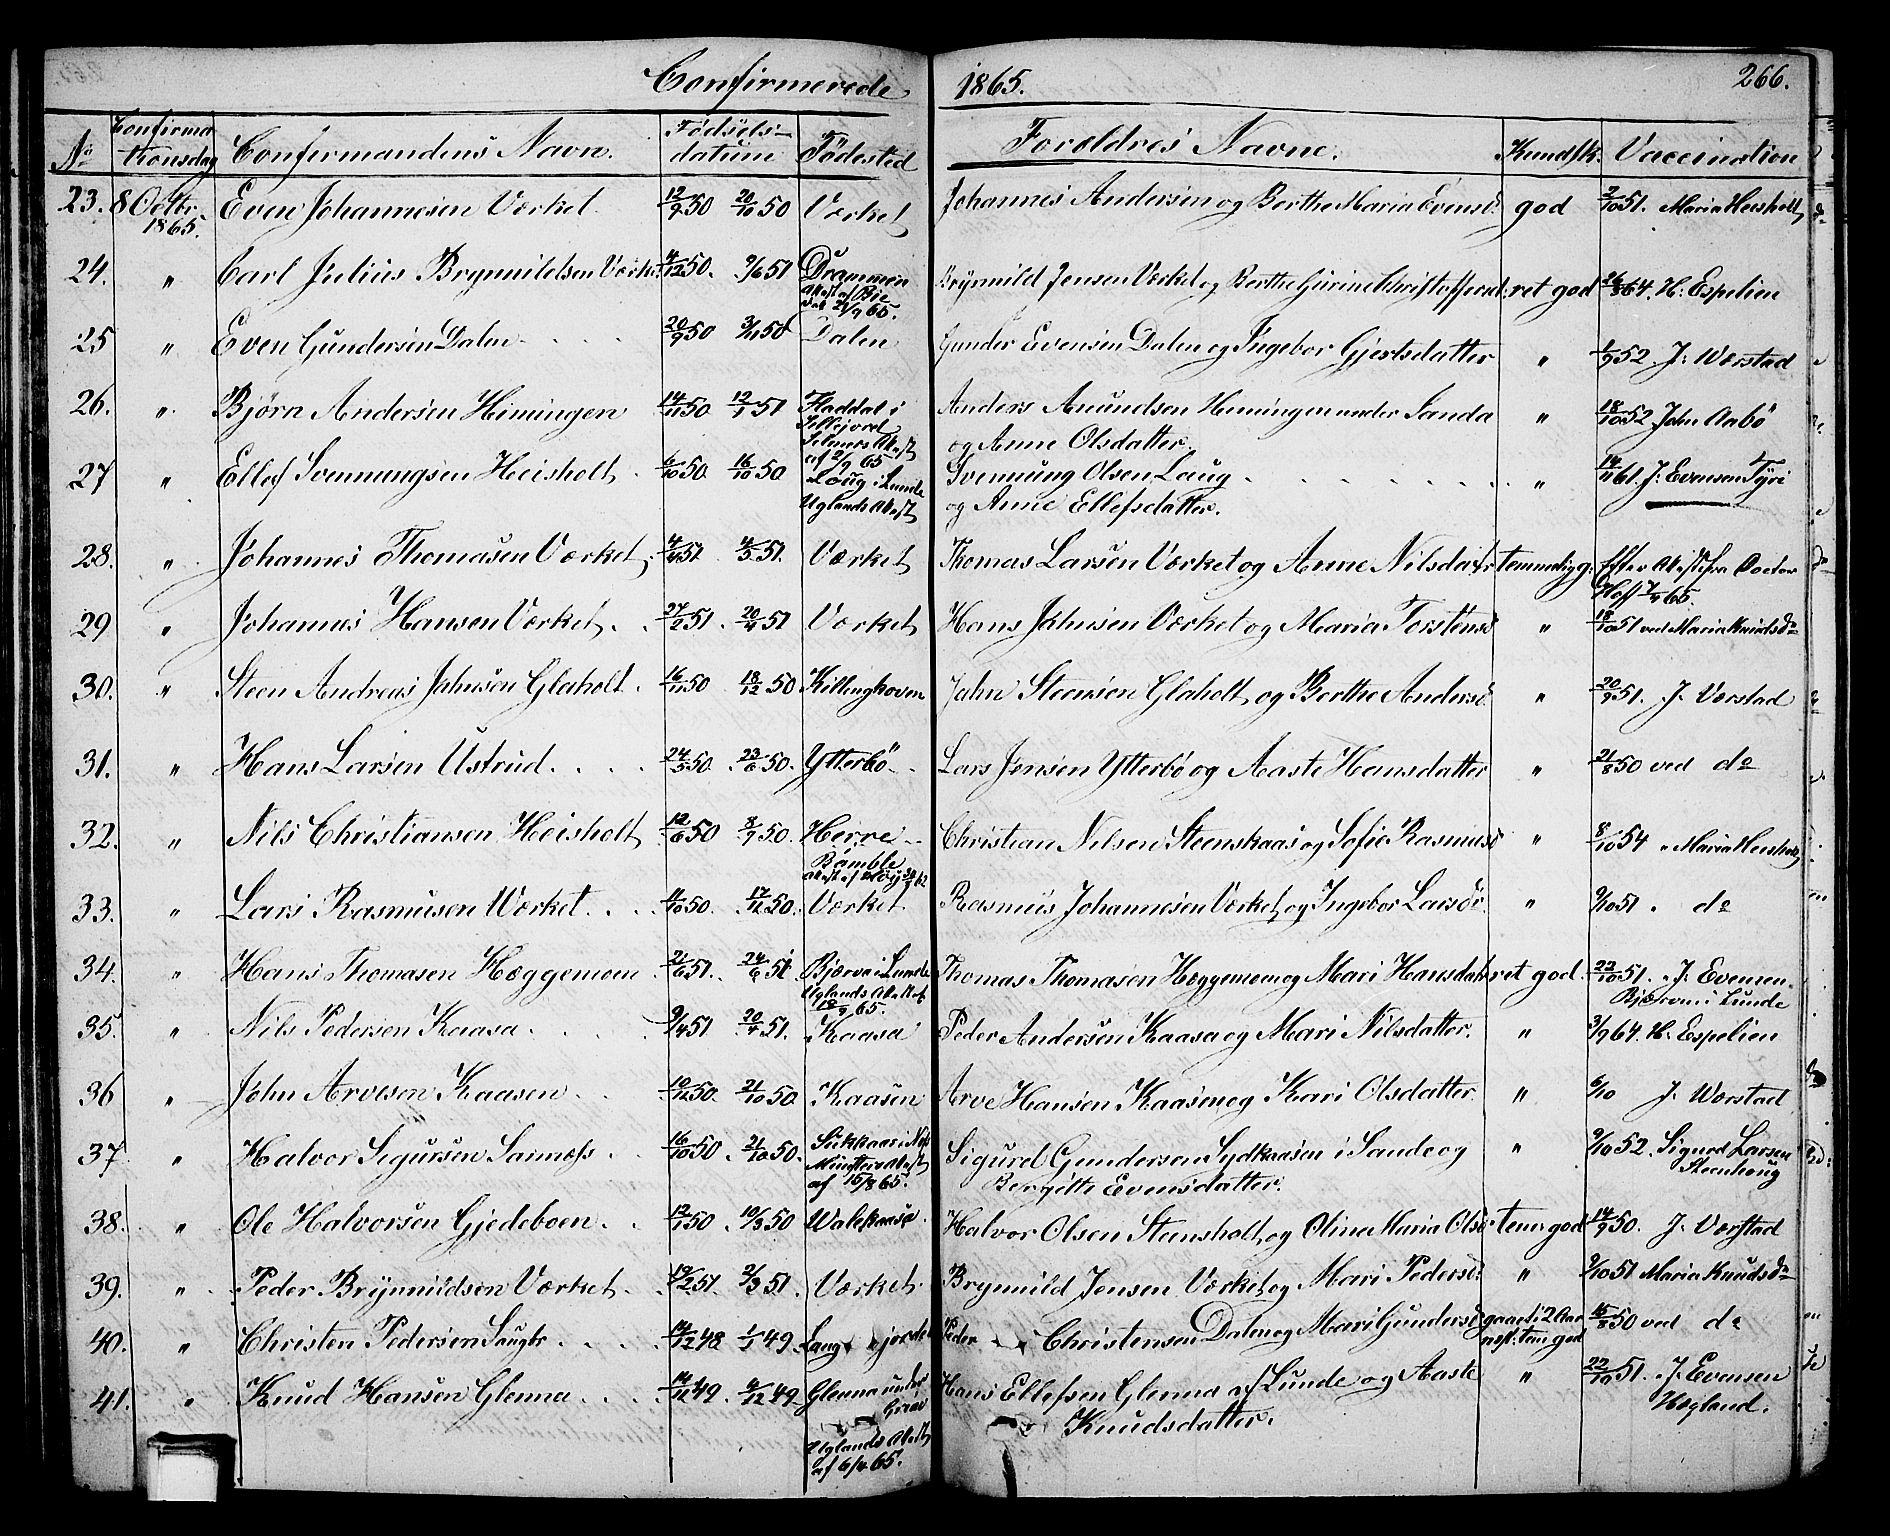 Confirmerede 1865. 266.
No Confirmationsdag Confirmandens Navn. Fødselsdatum Fødested Forældres Navne. Kundsk. Vaccination
23. 8 Octbr. 1865. Even Johannesen Værket. 12/9 50 20/10 50 Værket Johannes Andersen og Berthe Maria Evensd. god 2/10 51. Maria Heisholt
24. " Carl Julius Brynnildsen Værket 4/12 50. 9/6 51 Drammen
Attest af
dat 21/9 65. Brynnild Jensen Værket og Berthe Gurine Christoffersd. ret god 26/8 64. H. Espelien
25 " Even Gundersen Dalen 20/9 50 3/11 50 Dalen Gunder Evensen Dalen og Ingebor Gjertsdatter " 1/9 52. J. Værstad
26. " Bjørn Andersen Himingen 14/11 50 12/1 51 Fladdal i
Sillejord
Attest
af 2/9 65 Anders Amundsen Himingen under Sanda
og Anne Olsdatter. " 18/10 52 John Aabö
27 " Ellef Svennungsen Heisholt. 6/10 50. 16/10 50. Loug i Lunde
Uglands Attest Svennung Olsen Laug
og Anne Ellefsdatter. " 14/11 61. J. Evensen Tyri
28. " Johannes Thomasen Værket. 4/4 51 4/5 51. Værket Thomas Larsen Værket og Anne Nilsdatr temmelig g. Efter Attest fra Doctor
Hoff 7/9 65.
29 " Johannes Hansen Værket. 27/2 51. 20/4 51 Værket Hans Jahnsen Værket og Maria Torstensd " 18/10 51 ved Maria Knudsdr
30. " Steen Andreas Jahnsen Glaholt. 16/11 50 18/12 50 Killinghoven Jahn Steensen Glaholt og Berthe Andersd. " 20/9 51. J. Værstad
31. " Hans Larsen Ustrud. 24/5 50. 23/6 50. Ytterbö Lars Jensen Ytterbö og Aaste Hansdatter " 21/8 50 ved do
32. " Nils Christiansen Heisholt 12/6 50 8/9 50. Herre
Bamble
Attest af Christian Nilsen Steenskaas og Sofie Rasmusd " 8/10 54 " Maria Heisholt
33. " Lars Rasmusen Værket. 4/10 50. 17/12 50. Værket Rasmus Johannesen Værket og Ingebor Larsdr. " 9/10 51 " do
34. " Hans Thomasen Hæggemoen 21/6 51. 24/6 51 Bjerva i Lunde
Uglands Attest
18/9 65. Thomas Thomasen Hæggemoen og Mari Hansdatr ret god. 22/10 51. " J. Evensen
Bjærva i Lunde
35. " Nils Pedersen Kaasa 9/4 51 20/4 51. Kaasa Peder Andersen Kaasa og Mari Nilsdatter. " 3/9 64. H. Espelien
36 " John Arvesen Kaasen 10/12 50. 21/10 50. Kaasen Arve Hansen Kaasen og Kari Olsdatter " 6/10 J. Værstad
37 " Halvor Sigursen Sarmess. 16/10 50 21/10 50. Sukkaas i
Attest
af 15/8 65. Sigurd Gundersen Sydkaasen i Sande og
Bergitte Evensdatter. " 9/10 52. Sigurd Larsen
Steenhoug
38. " Ole Halvorsen Gjedeboen 12/1 50 10/3 50 Valekaasa Halvor Olsen Steensholt og Olina Maria Olsdr tem. god 14/9 50. J. Værstad
39. " Peder Brynnildsen Værket. 19/2 51. 2/3 51. Værket Brynnild Jensen Værket og Mari Pedersd. " 9/10 51 Maria Knudsdr
40. " Christen Pedersen Saugbr 14/12 48 1/1 49. Laug Peder Christensen Dalen og Mari Gundersd gaaet i 2 Aar
tem god 15/8 50 ved do
41. " Knud Hansen Glenna 14/11 49. 4/12 49. Glenna under
Uglands Attest
af 6/4 65. Hans Ellefsen Glenna af Lunde og Aaste
Knudsdatter. " 22/10 51. " J. Evensen
Hægland.